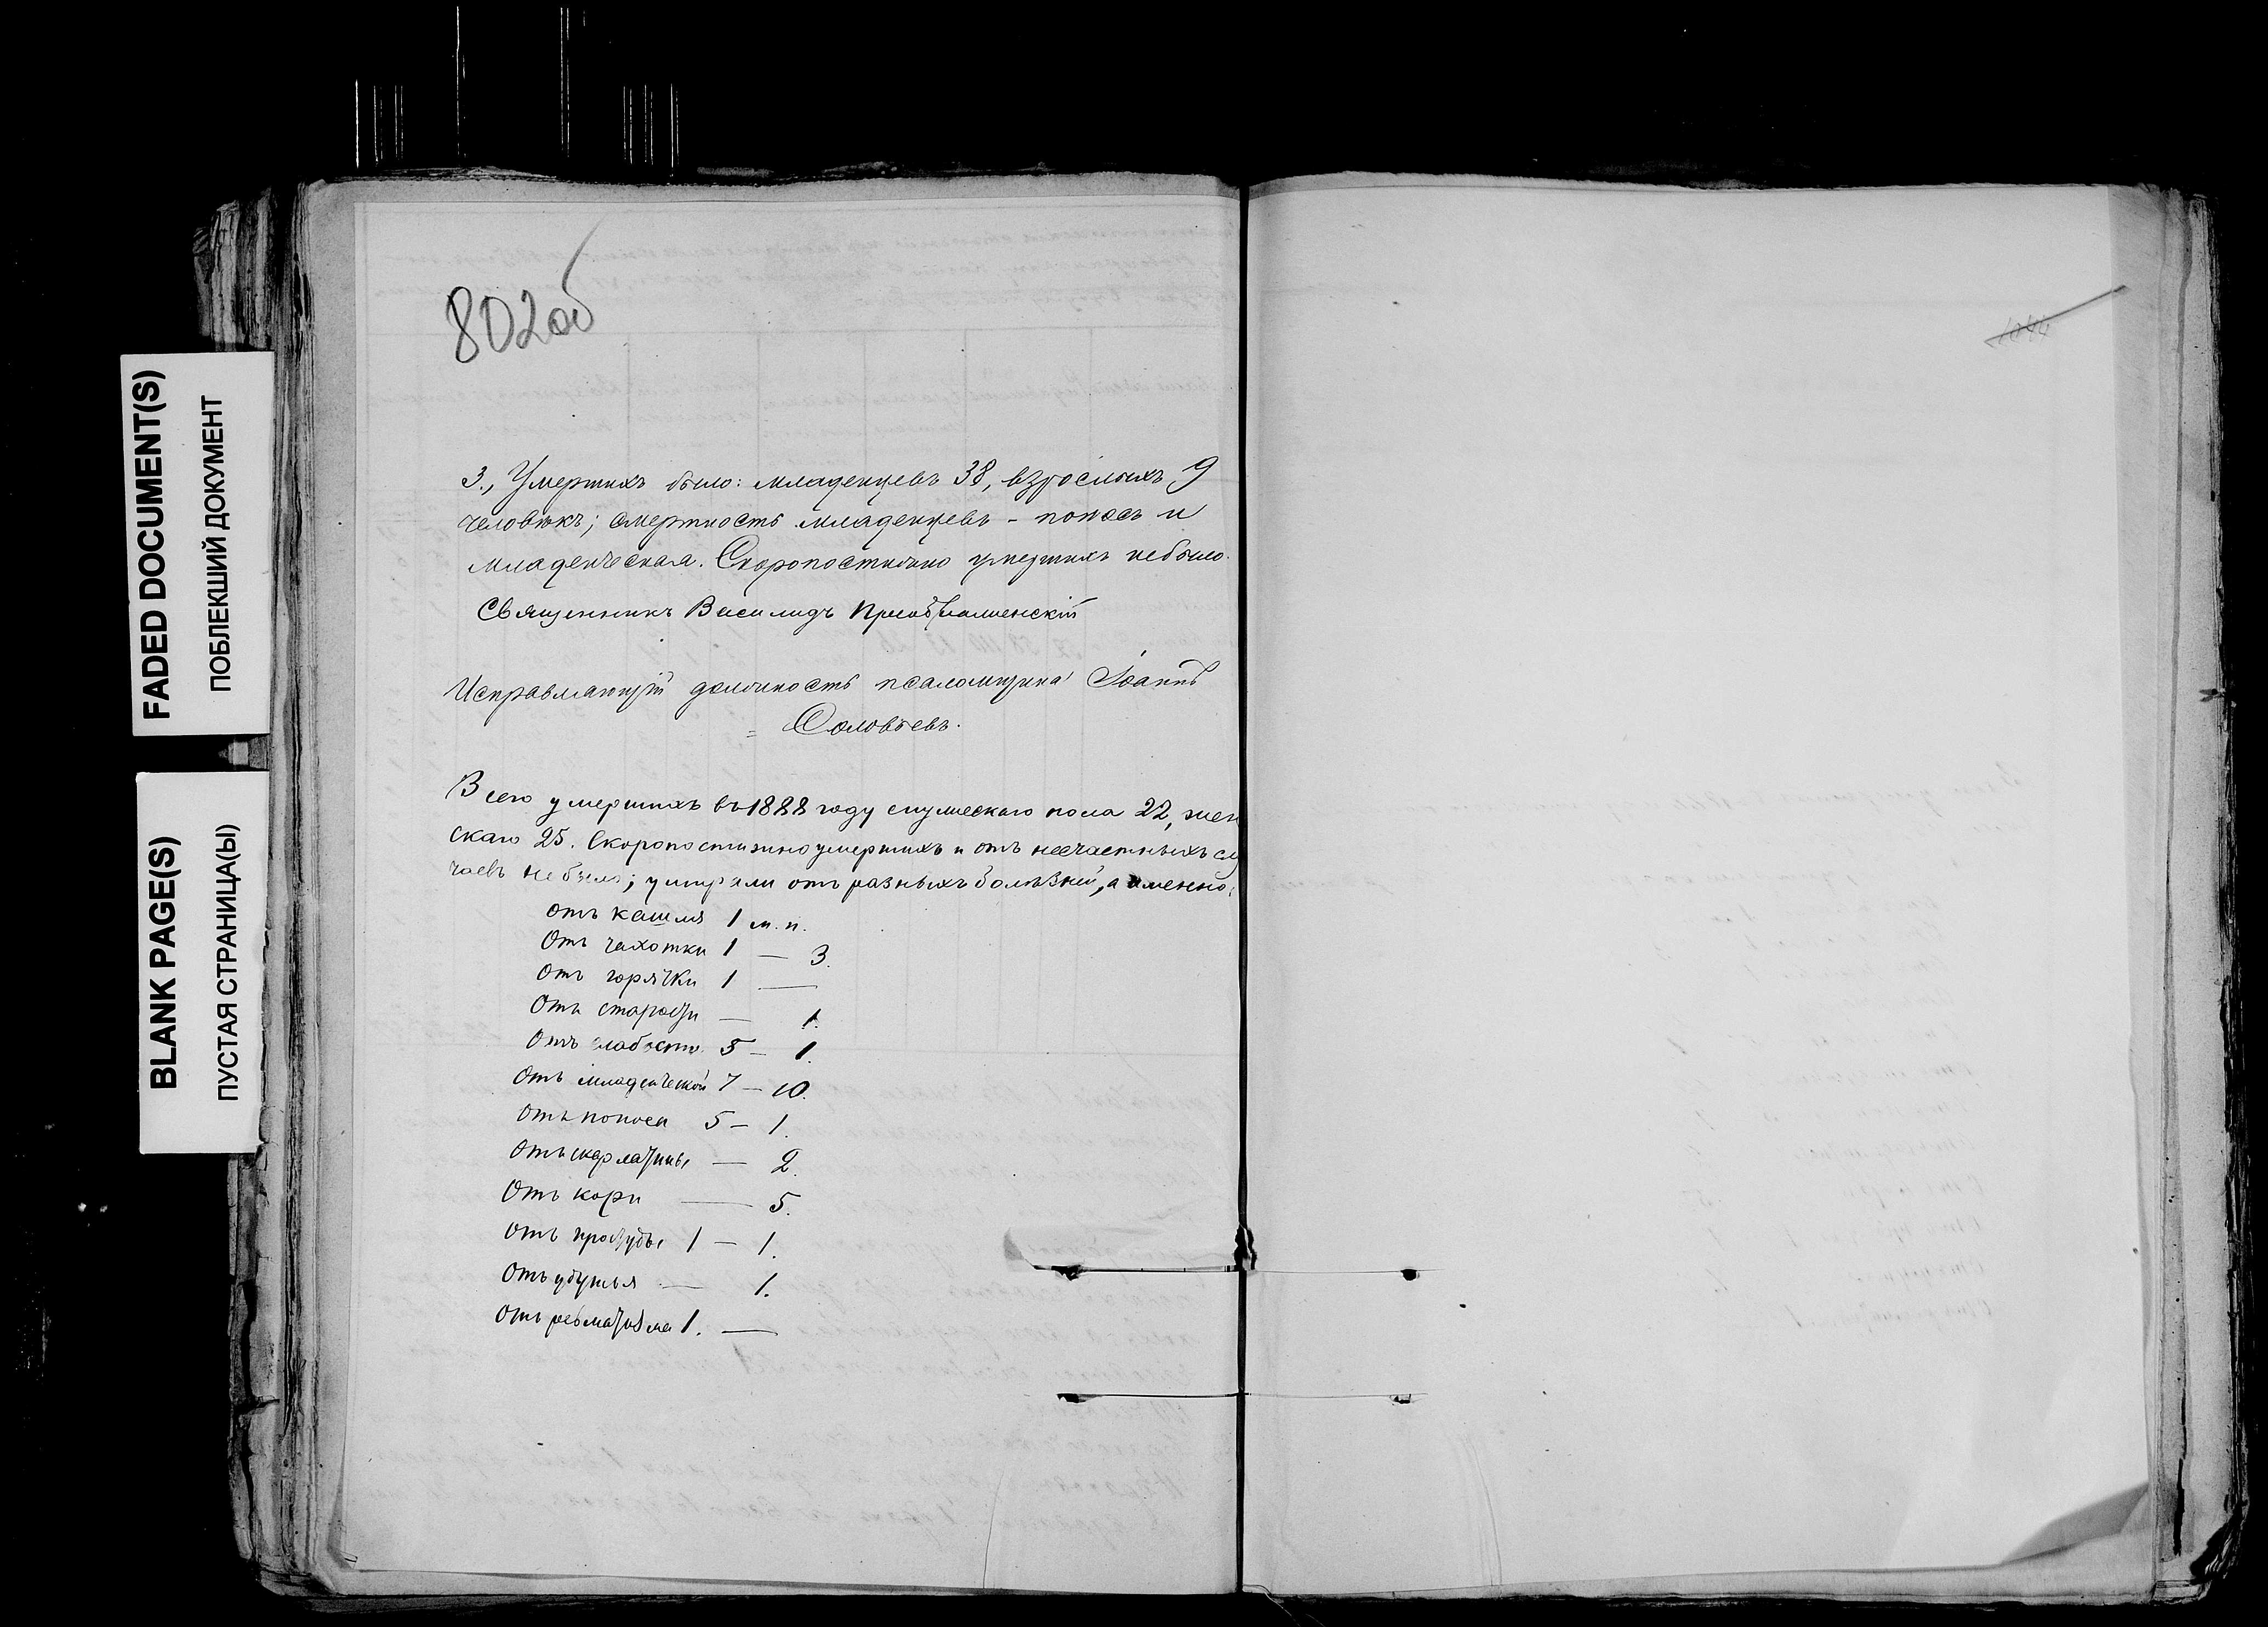 FADED DOCUMENT(S)
ПОБЛЕКШИЙ ДОКУМЕНТ
BLANK PAGE(S)
ПУСТАЯ СТРАНИЦА(Ы)
802об
3., Умершихъ было: младенцевъ 38, взрослыхъ 9
человѣкъ; смертность младенцевъ - поносъ и
младенческая. Скоропостижно умершихъ небыло.
Священникъ Василидъ Преображенскій
Исправляющій должность псаломщика Іоаннъ
= Соловьевъ.
Всего умершихъ въ 1888 году мужескаго пола 22, жен
скаго 25. Скоропостижно умершихъ и отъ несчастныхъ слу
чаевъ не было; умирали отъ разныхъ болѣзней, а именно:
Отъ кашля 1 м. п.
Отъ чахотки 1 — 3.
Отъ горячки 1 —
Отъ старости — 1.
Отъ слабости 5 — 1.
Отъ младенческой 7 — 10.
Отъ поноса 5 — 1.
Отъ скарлатины — 2.
Отъ кори — 5.
Отъ простуды 1 — 1.
Отъ удушья — 1.
Отъ ревматизма 1. —